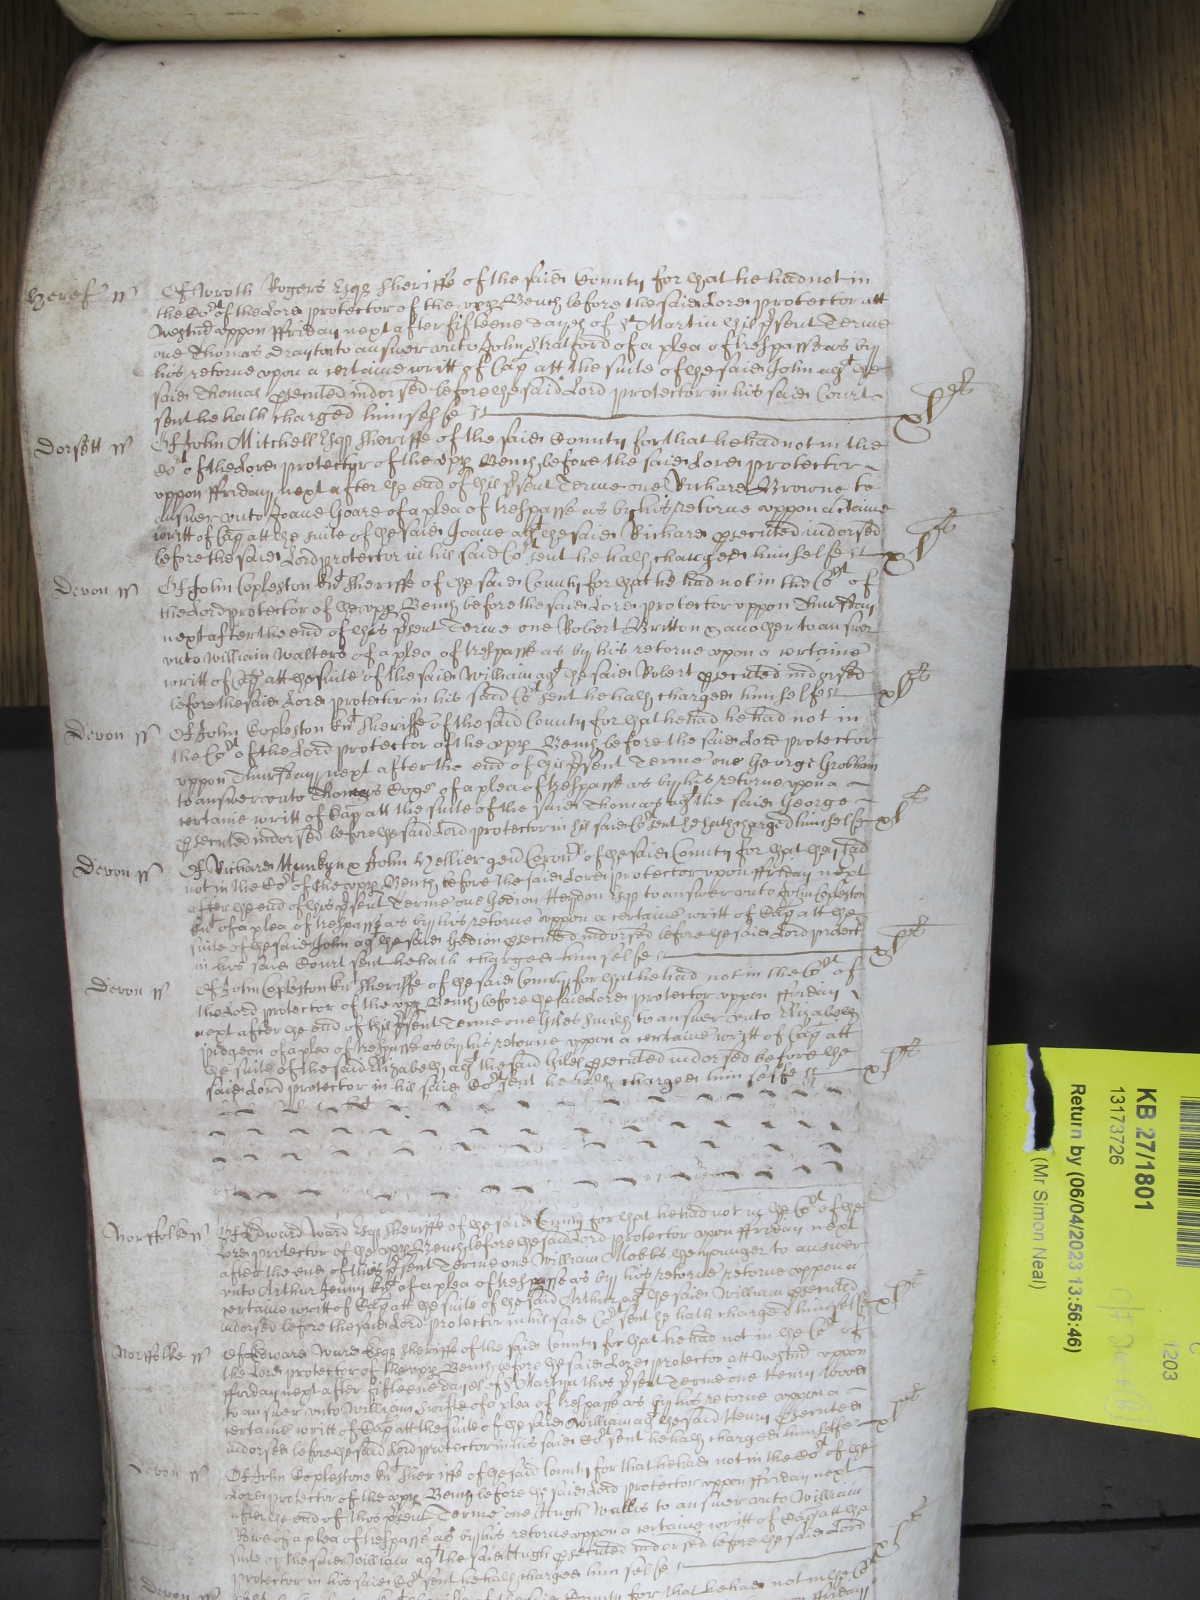 Heref ss Of Wroth Rogers Esqr Sheriffe of the said County for that he had not in
the Cort of the Lord protector of the upp Bench before the said Lord protector att
Westmr uppon ffriday next after fifteene dayes of St Martin this psent Terme
one Thomas Drayton to answer unto John Stratford of a plea of trespasse as by
his retorne upon a certaine writt of Cap att the suite of the said John agt the
said Thomas executed indorsed before the said Lord protector in his said Court
sent he hath charged himselfe
Dorsett ss Of John Mitchell Esqr Sheriffe of the said County for that he had not in the
Cort of the Lord protector of the upp Bench before the said Lord protector
uppon ffriday next after the end of this psent Terme one Richard Browne to
answer unto Joane Goare of a plea of trespasse as by his retorne uppon a certaine
writt of Cap att the suite of the said Joane agt the said Richard executed indorsed
before the said Lord protector in his said Cort sent he hath charged himselfe
Devon ss Of John Copleston Knt Sheriffe of the said County for that he had not in the Cort of
the Lord protector of the upp Bench before the said Lord protector uppon Thursday
next after the end of this psent Terme one Robert Britton & another to answer
unto William Walters of a plea of trespasse as by his retorne upon a certaine
writt of Cap att the suite of the said William agt the said Robert executed indorsed
before the said Lord protector in his said Cort sent he hath charged himselfe
Devon ss Of John Copleston Knt Sheriffe of the said County for that he had he had not in
the Cort of the Lord protector of the upp Bench before the said Lord protector
uppon Thursday next after the end of this psent Terme one George Grobham
to answer unto Thomas Doge of a plea of trespasse as by his retorne upon a
certaine writt of Cap att the suite of the said Thomas agt the said George
executed indorsed before the said Lord protector in his said Cort sent he hath charged himselfe
Devon ss Of Richard & John Hellier gen Coron of the said County for that they had
not in the Cort of the upp Bench before the said Lord protector upon ffriday next
after the end of this psent Terme one Gedion Heydon Esqr to answer unto John Copleston
Knt of a plea of trespasse as by his retorne uppon a certaine writt of Cap att the
suite of the said John agt the said Gedion executed indorsed before the said Lord protect
in his said Court sent he hath charged himselfe
Devon ss Of John Copleston Knt Sheriffe of the said County for that he had not in the Cort of
the Lord protector of the upp Bench before the said Lord protector uppon ffriday
next after the end of this psent Terme one Giles Smith to answer unto Elizabeth
Pidgeon of a plea of trespasse as by his retorne uppon a certaine writt of Cap att
the suite of the said Elizabeth agt the said Giles executed indorsed before the
said Lord protector in his said Cort sent he hath charged himselfe
Norffolke ss Of Edward Ward Esqr Sheriffe of the said County for that he had not in the Cort of the
Lord protector of the upp Bench before the said Lord protector upon ffriday next
after the end of this psent Terme one William Mobbs the younger to answer
unto Arthur Jenny Knt of a plea of trespasse as by his retorne retorne uppon a
certaine writt of Cap att the suite of the said Arthur agt the said William executed
indorsed before the said Lord protector in his said Cort sent he hath charged himselfe
Norffolke ss Of Edward Ward Esqr Sheriffe of the said County for that he had not in the Cort of
the Lord protector of the upp Bench before the said Lord protector att Westmr uppon
ffriday next after fifteene dayes of St Martyn this psent Terme one Henry Wood
to answer unto William of a plea of trespasse as by his retorne uppon a
certaine writt of Cap att the suite of the said William agt the said Henry executed
indorsed before the said Lord protector in his said Cort sent he hath charged himselfe
Devon ss Of John Coplestone Knt Sheriffe of the said County for that he had not in the Cort of the
Lord protector of the upp Bench before the said Lord protector uppon ffriday next
after the end of this psent Terme one Hugh Wallis to answer unto William
Rowe of a plea of trespasse as by his retorne uppon a certaine writt of Cap att the
suite of the said William agt the said Hugh executed indorsed before the said Lord
protector in his said Cort sent he hath charged himselfe
Devon ss County for that he had not in the Cort
KB 27/1801
13173726
Return by (06/04/2023 13:56:46)
(Mr Simon Neal)
1203